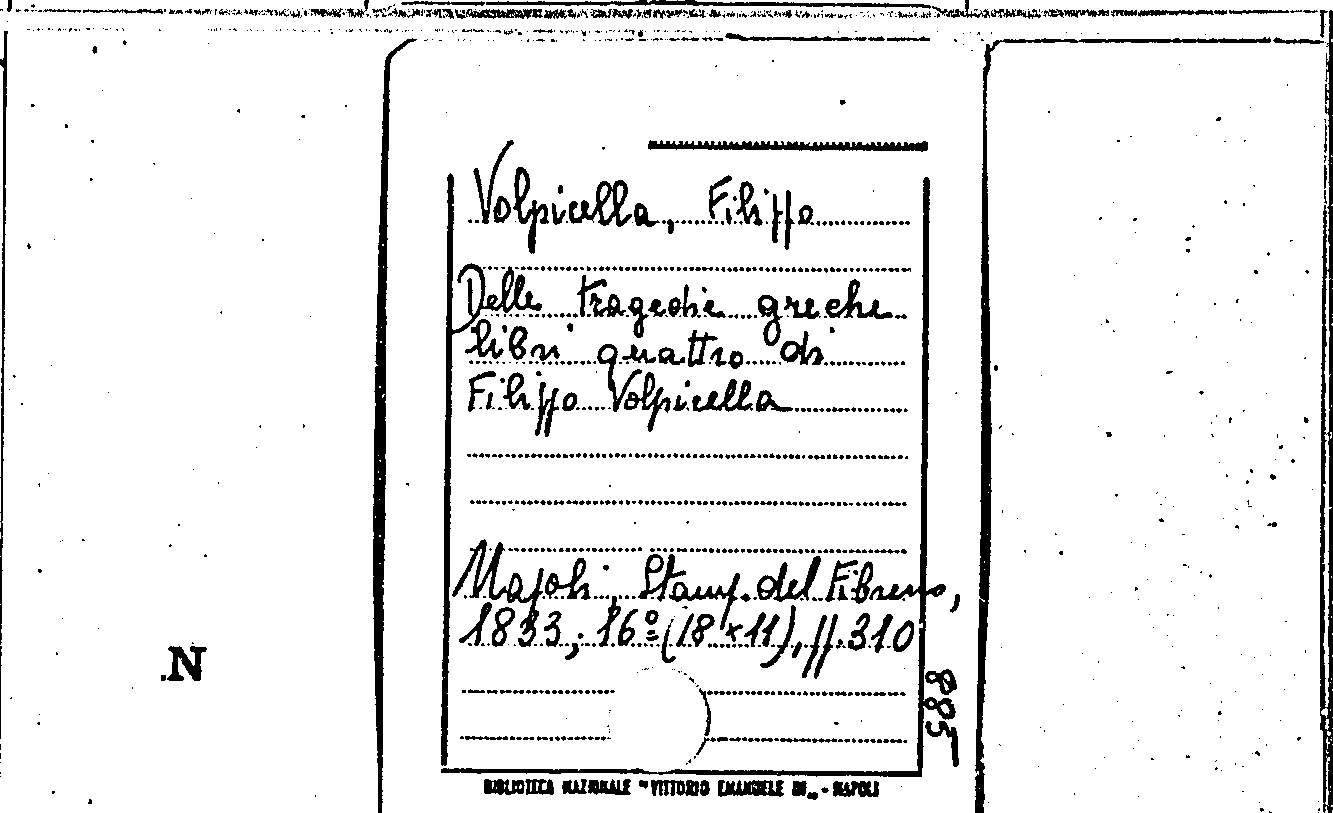 Volpicella, Filippo
Delle tragedie greche
libri quattro di
Filippo Volpicella
Napoli, Stamp. del Fibreno,
1833, 16º (18×11), pp. 310
885
N
BIBLIOTECA NAZIONALE "VITTORIO EMANUELE III„ - NAPOLI